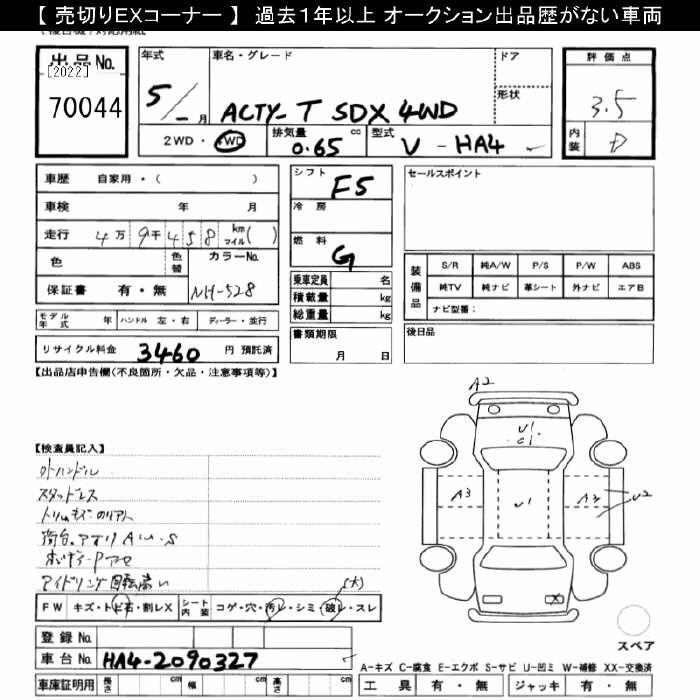 【 売切りEXコーナー 】 過去１年以上 オークション出品歴がない車両
出品No.
[2022]
70044
年式
5/ 月
車名・グレード
ACTY-T SDX 4WD
ドア
形状
評価点
3.5
内装
D
2WD・4WD
排気量
0.65 cc
型式
V - HA4
車歴 自家用・( )
車検 年 月
走行 4万 9千 4 5 8 km マイル ( )
色
色替
カラーNo.
NH-528
保証書 有・無
シフト
F5
冷房
燃料
G
乗車定員 名
積載量 kg
総重量 kg
書類期限
月 日
セールスポイント
装備品
S/R 純A/W P/S P/W ABS
純TV 純ナビ 革シート 外ナビ エアB
ナビ型番：
後日品
モデル年式 年 ハンドル 左・右 ディーラー・並行
リサイクル料金 3460 円 預託済
【出品店申告欄(不良箇所・欠品・注意事項等)】
【検査員記入】
外ハンドル
スタッドレス
荷台。アオリ A U S
ボディーP
アイドリング回転高い
(大)
FW キズ・トビ石・割レX シート内装 コゲ・穴・汚レ・シミ・破レ・スレ
登録No.
車台No. HA4-2090327
車庫証明用 長さ cm 幅 cm 高さ cm
A2
U1
C1
A3
U1
A3
U2
X
スペア
A－キズ C－腐食 E－エクボ S－サビ U－凹ミ W－補修 XX－交換済
工具 有・無 ジャッキ 有・無